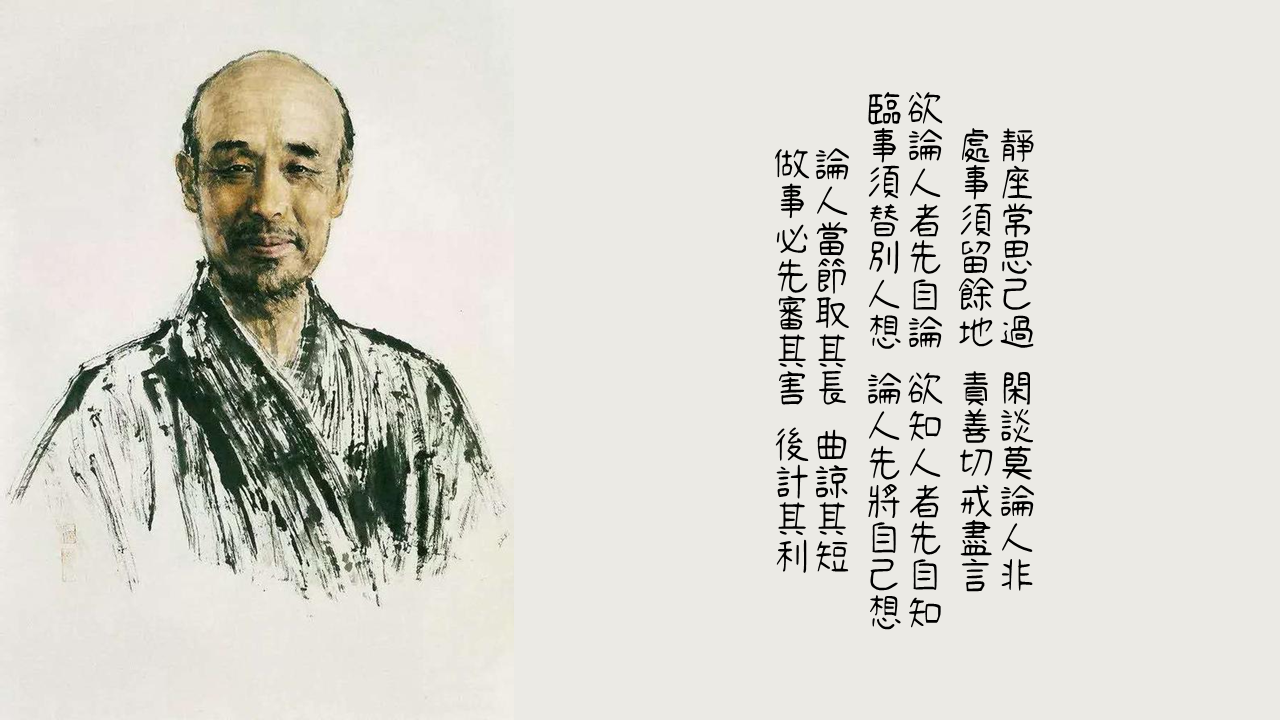 靜座常思己過 閑談莫論人非
處事須留餘地 責善切戒盡言
欲論人者先自論 欲知人者先自知
臨事須替別人想 論人先將自己想
論人當節取其長 曲諒其短
做事必先審其害 後計其利